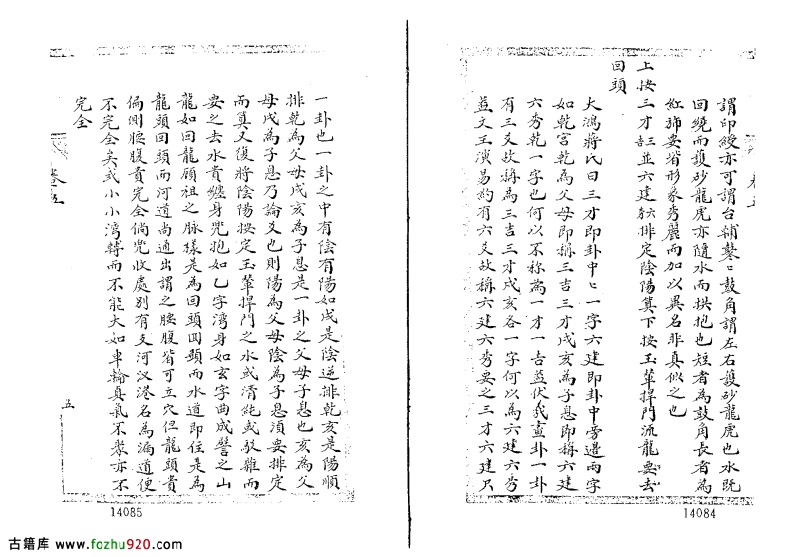 謂印綬亦可謂台輔鑾〻鼓角謂左右護砂龍虎也水既
回繞而護砂龍虎亦隨水而拱抱也短者為鼓角長者為
紅旆要皆形象秀麗而加以異名非真似之也
上按三才三吉並六建六秀排定陰陽算下按玉輦捍門流龍要去
回頭
大鴻蔣氏曰三才即卦中〻一字六建即卦中旁邊兩字
如乾宮乾為父母即稱三吉三才戌亥為子息即稱六建
六秀乾一字也何以不称為一才一吉蓋伏羲畫卦一卦
有三爻故稱為三吉三才戌亥各一字何以為六建六秀
蓋文王演易的有六爻故稱六建六秀要之三才六建只
一卦也一卦之中有陰有陽如戌是陰逆排乾亥是陽順
排乾為父母戌亥為子息是一卦之父母子息也亥為父
母戌為子息乃論爻也則陽為父母陰為子息須要排定
而算又復將陰陽按定玉輦捍門之水或清純或駁雜而
要之去水貴纏身兜抱如乙字灣身如玄字曲成譬之山
龍如回龍顧祖之脈樣是為回頭回顧而水道即住是為
龍頭回頭而河道尚通出謂之腰腹皆可立穴但龍頭貴
倘側腰腹貴完全倘兜收處別有支河汊港名為漏道便
不完全矣或小小灣轉而不能大如車輪真氣不聚亦不
完全
卷五
五
14085
14084
古籍库 www.fozhu920.com